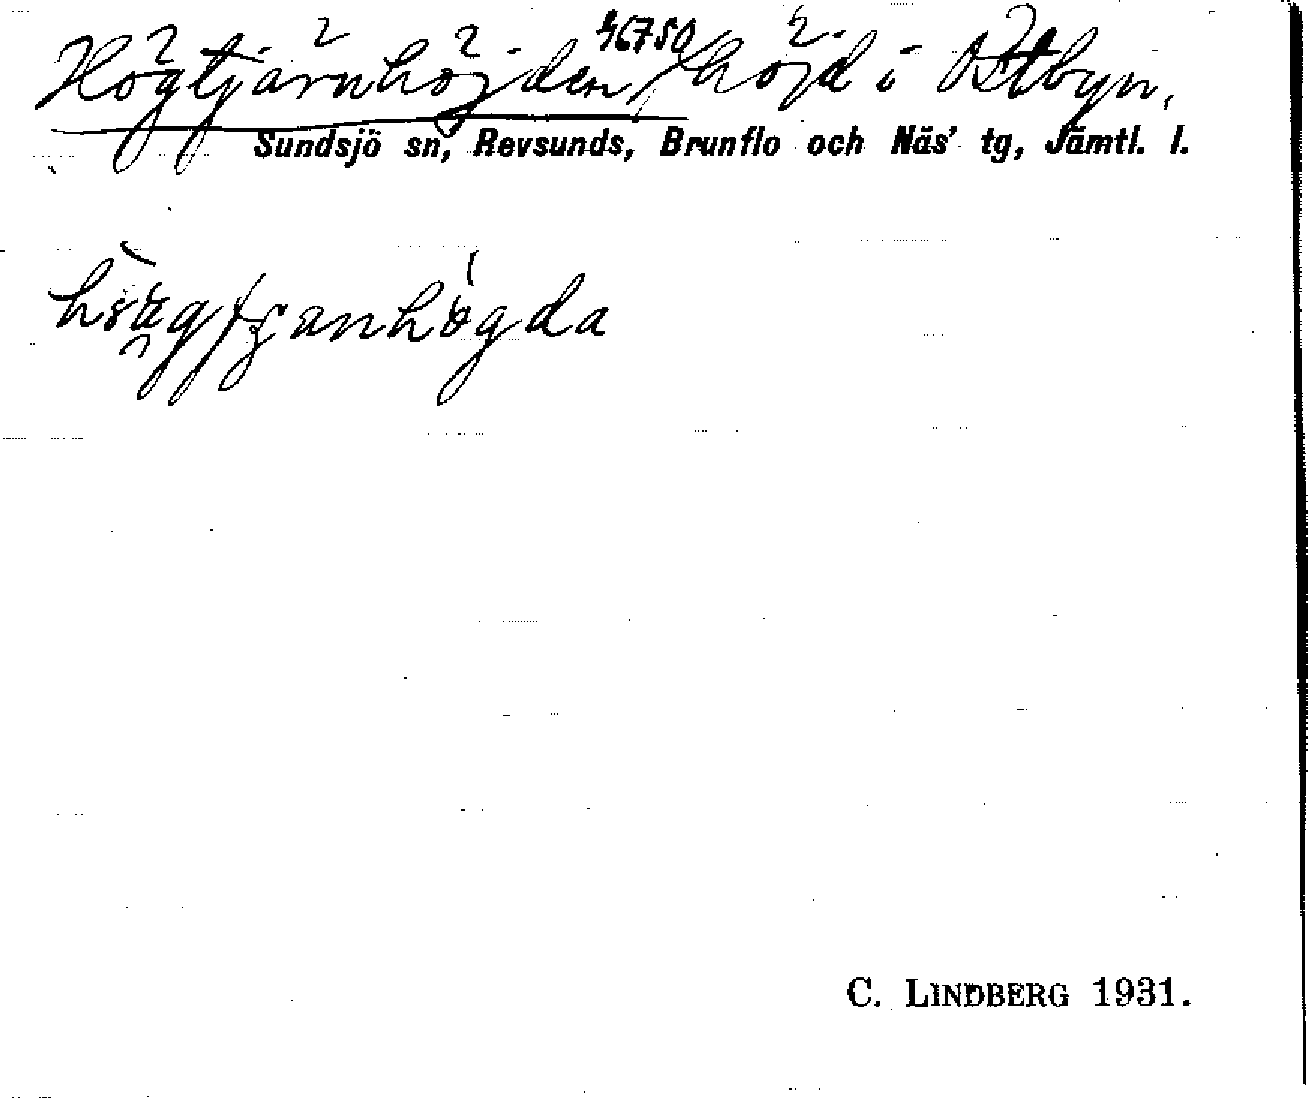 46750
Högtjärnhöjden, höjd i Östbyn,
Sundsjö sn, Revsunds, Brunflo och Näs' tg, Jämtl. l.
C. LINDBERG 1931.